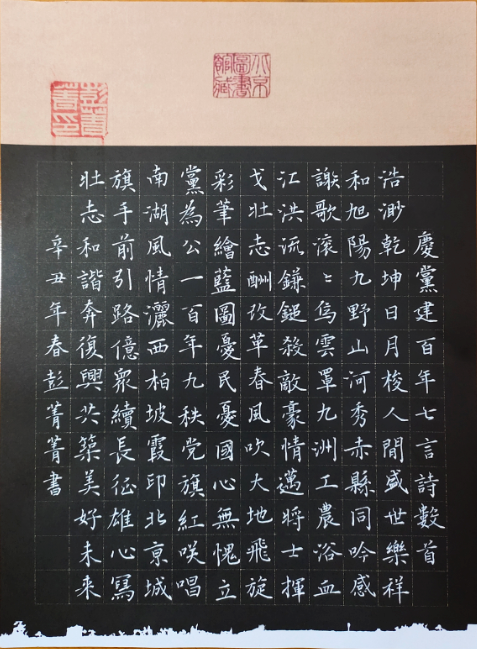 北京圖書館藏
彭菁菁印
慶黨建百年七言詩數首
浩渺乾坤日月梭人間盛世樂祥
和旭陽九野山河秀赤縣同吟感
謝歌滚〻烏雲罩九洲工農浴血
江洪流鎌鎚殺敵豪情邁將士揮
戈壯志酬改革春風吹大地飛旋
彩筆繪藍圖憂民憂國心無愧立
黨為公一百年九秩党旗紅咲唱
南湖風情灑西柏坡霞印北京城
旗手前引路億眾續長征雄心寫
壯志和諧奔復興共築美好未來
辛丑年春彭菁菁書